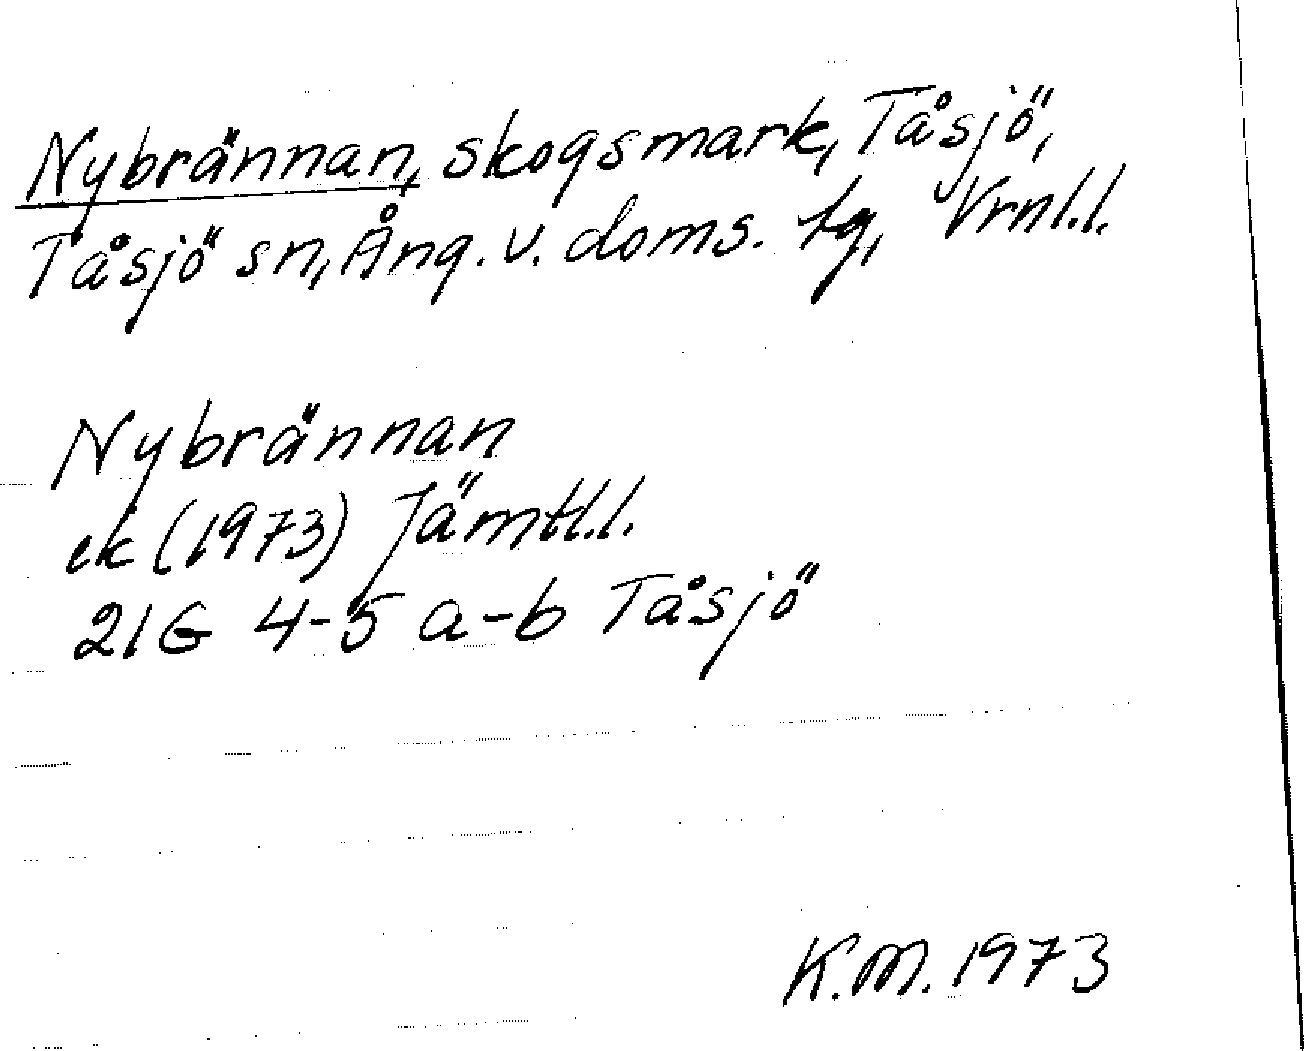 Nybrännan, skogsmark, Tåsjö,
Tåsjö sn, Ång. v. doms. tg, Vrnl.l.
Nybrännan
ek (1973) Jämtl.l.
21G 4-5 a-b Tåsjö
K.M. 1973